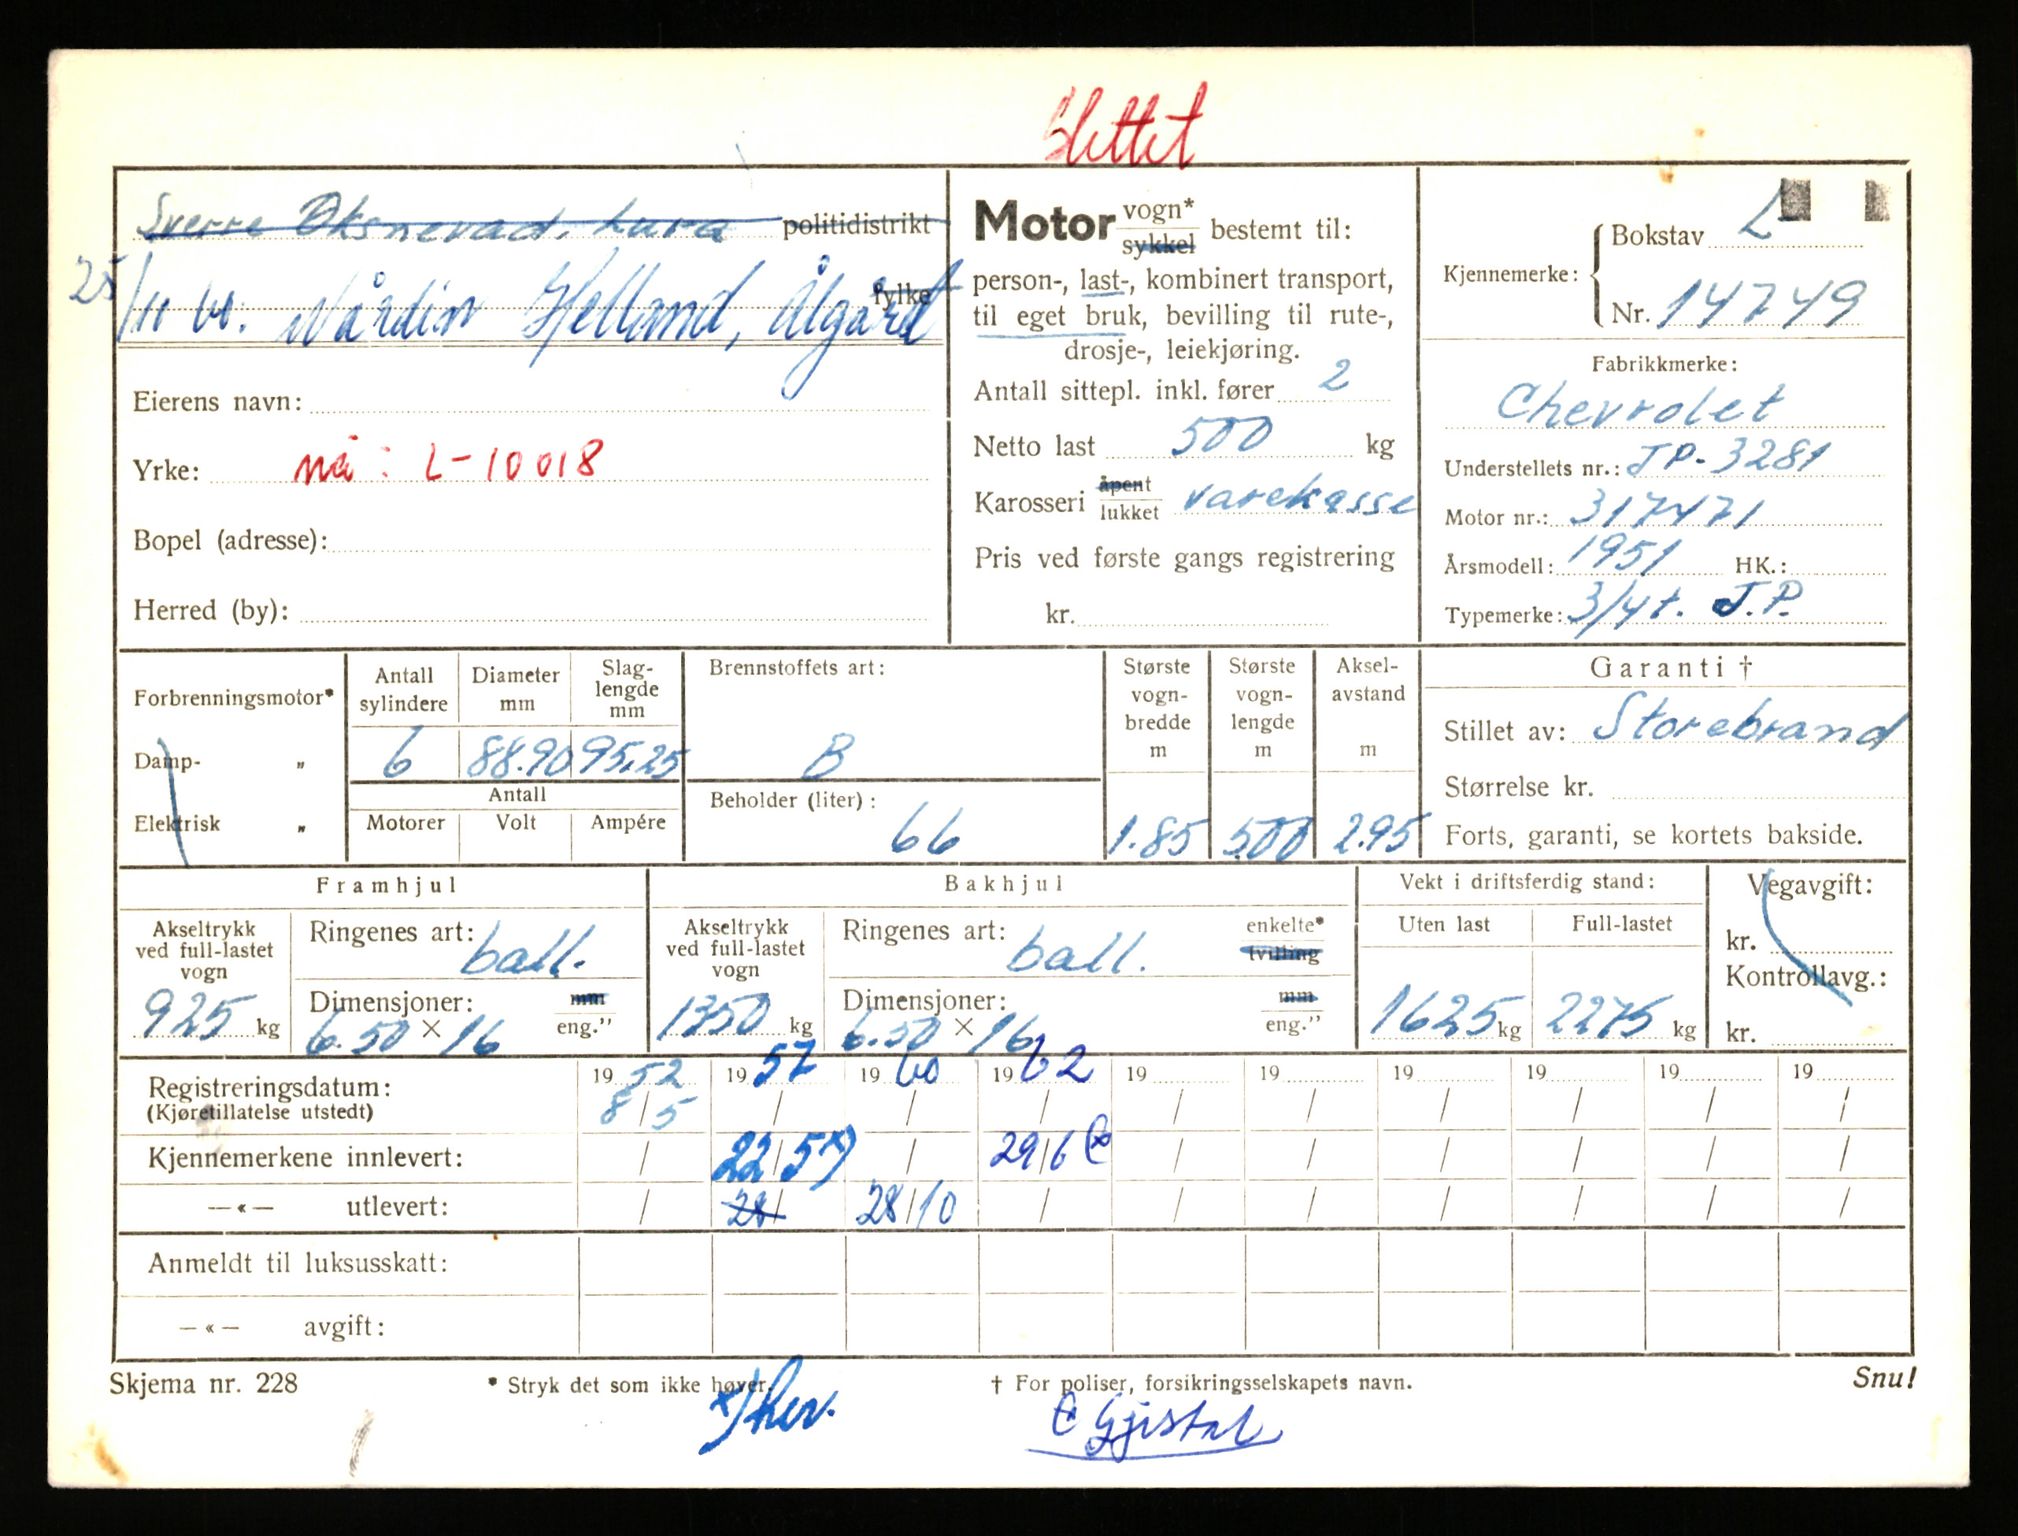 Slettet
Sverre Øksnevad, Lura politidistrikt
25/11 60. Nårdin Helland, Ålgård fylke
Eierens navn:
Yrke: nå: L-10018
Bopel (adresse):
Herred (by):
Motor vogn* sykkel bestemt til:
person-, last-, kombinert transport,
til eget bruk, bevilling til rute-,
drosje-, leiekjøring.
Antall sittepl. inkl. fører 2
Netto last 500 kg
Karosseri åpent lukket varekasse
Pris ved første gangs registrering
kr.
Kjennemerke: Bokstav L
Nr. 14749
Fabrikkmerke:
Chevrolet
Understellets nr.: JP-3281
Motor nr.: 317471
Årsmodell: 1951 HK.:
Typemerke: 3/4 t. J.P.
Forbrenningsmotor*
Damp- „
Elektrisk „
Antall sylindere 6
Diameter mm 88.90
Slag-lengde mm 95.25
Antall
Motorer Volt Ampére
Brennstoffets art:
B
Beholder (liter):
66
Største vogn-bredde m 1.85
Største vogn-lengde m 5.00
Aksel-avstand m 2.95
Garanti †
Stillet av: Storebrand
Størrelse kr.
Forts, garanti, se kortets bakside.
Framhjul
Akseltrykk ved full-lastet vogn 925 kg
Ringenes art: ball.
Dimensjoner: mm
6.50 × 16 eng.”
Bakhjul
Akseltrykk ved full-lastet vogn 1350 kg
Ringenes art: ball. enkelte* tvilling
Dimensjoner: mm
6.50 × 16 eng.”
Vekt i driftsferdig stand:
Uten last Full-lastet
1625 kg 2275 kg
Vegavgift:
kr.
Kontrollavg.:
kr.
Registreringsdatum: 1952 1957 1960 1962 19 19 19 19 19 19
(Kjøretillatelse utstedt) 8/5 / / / / / / / / /
Kjennemerkene innlevert: / 22/5 x) / 29/6 / / / / / /
—«— utlevert: / 28/ 28/10 / / / / / / /
Anmeldt til luksusskatt:
—«— avgift:
Skjema nr. 228
* Stryk det som ikke høver.
† For poliser, forsikringsselskapets navn.
Snu!
x)
Gjistal